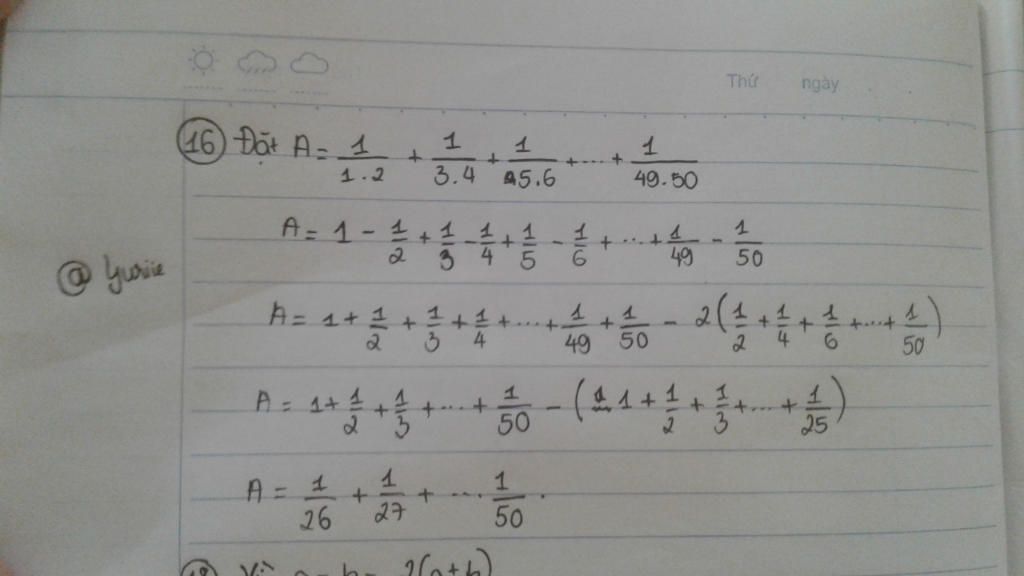 Thứ ngày
16 Đặt A = 1/1.2 + 1/3.4 + 1/5.6 + ... + 1/49.50
A = 1 - 1/2 + 1/3 - 1/4 + 1/5 - 1/6 + ... + 1/49 - 1/50
@
A = 1 + 1/2 + 1/3 + 1/4 + ... + 1/49 + 1/50 - 2(1/2 + 1/4 + 1/6 + ... + 1/50)
A = 1 + 1/2 + 1/3 + ... + 1/50 - (1 + 1/2 + 1/3 + ... + 1/25)
A = 1/26 + 1/27 + ... 1/50.